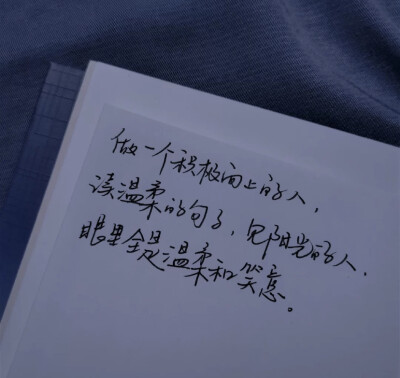 做一个积极向上的人，
读温柔的句子，见阳光的人，
眼里全是温柔和笑意。